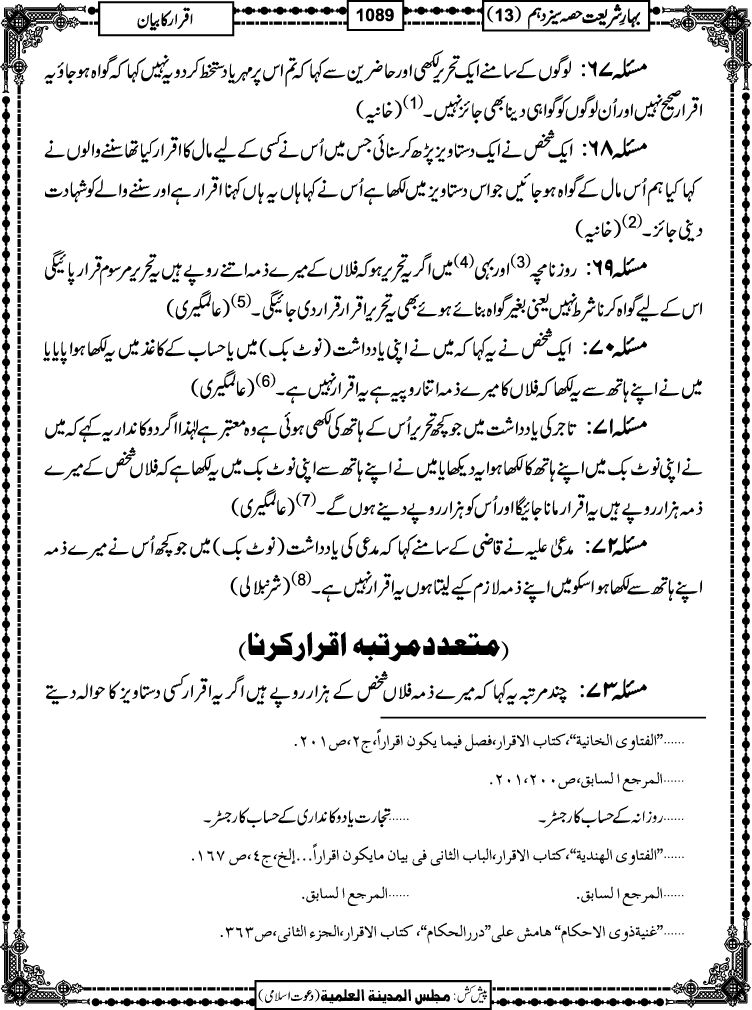 بہارِ شریعت حصہ سیزدہم (13)
1089
اقرار کا بیان
مسئلہ ۶۷: لوگوں کے سامنے ایک تحریر لکھی اور حاضرین سے کہا کہ تم اس پر مہر یا دستخط کردو یہ نہیں کہا کہ گواہ ہوجاؤ یہ
اقرار صحیح نہیں اور اُن لوگوں کو گواہی دینا بھی جائز نہیں۔(1) (خانیہ)
مسئلہ ۶۸: ایک شخص نے ایک دستاویز پڑھ کر سنائی جس میں اُس نے کسی کے لیے مال کا اقرار کیا تھا سننے والوں نے
کہا کیا ہم اُس مال کے گواہ ہوجائیں جو اس دستاویز میں لکھا ہے اُس نے کہا ہاں یہ ہاں کہنا اقرار ہے اور سننے والے کو شہادت
دینی جائز۔(2) (خانیہ)
مسئلہ ۶۹: روزنامچہ(3) اور بہی(4) میں اگر یہ تحریر ہو کہ فلاں کے میرے ذمہ اتنے روپے ہیں یہ تحریر مرسوم قرار پائیگی
اس کے لیے گواہ کرنا شرط نہیں یعنی بغیر گواہ بنائے ہوئے بھی یہ تحریر اقرار قرار دی جائیگی۔(5) (عالمگیری)
مسئلہ ۷۰: ایک شخص نے یہ کہا کہ میں نے اپنی یادداشت (نوٹ بک) میں یا حساب کے کاغذ میں یہ لکھا ہوا پایا یا
میں نے اپنے ہاتھ سے یہ لکھا کہ فلاں کا میرے ذمہ اتنا روپیہ ہے یہ اقرار نہیں ہے۔(6) (عالمگیری)
مسئلہ ۷۱: تاجر کی یادداشت میں جو کچھ تحریر اُس کے ہاتھ کی لکھی ہوئی ہے وہ معتبر ہے لہٰذا اگر دوکاندار یہ کہے کہ میں
نے اپنی نوٹ بک میں اپنے ہاتھ کا لکھا ہوا یہ دیکھا یا میں نے اپنے ہاتھ سے اپنی نوٹ بک میں یہ لکھا ہے کہ فلاں شخص کے میرے
ذمہ ہزار روپے ہیں یہ اقرار مانا جائیگا اور اُس کو ہزار روپے دینے ہوں گے۔(7) (عالمگیری)
مسئلہ ۷۲: مدعیٰ علیہ نے قاضی کے سامنے کہا کہ مدعی کی یادداشت (نوٹ بک) میں جو کچھ اُس نے میرے ذمہ
اپنے ہاتھ سے لکھا ہو اسکو میں اپنے ذمہ لازم کیے لیتا ہوں یہ اقرار نہیں ہے۔(8) (شرنبلالی)
(متعدد مرتبہ اقرار کرنا)
مسئلہ ۷۳: چند مرتبہ یہ کہا کہ میرے ذمہ فلاں شخص کے ہزار روپے ہیں اگر یہ اقرار کسی دستاویز کا حوالہ دیتے
......"الفتاوی الخانیة"، کتاب الاقرار، فصل فیما یکون اقراراً، ج٢، ص ٢٠١.
......المرجع السابق، ص ٢٠٠، ٢٠١.
......روزانہ کے حساب کا رجسٹر۔ ......تجارت یا دوکانداری کے حساب کا رجسٹر۔
......"الفتاوی الهندیة"، کتاب الاقرار، الباب الثانی فی بیان مایکون اقراراً...إلخ، ج٤، ص ١٦٧.
......المرجع السابق. ......المرجع السابق.
......"غنیة ذوی الاحکام" هامش علی "دررالحکام"، کتاب الاقرار، الجزء الثانی، ص ٣٦٣.
پیش کش: مجلس المدینة العلمیة (دعوت اسلامی)